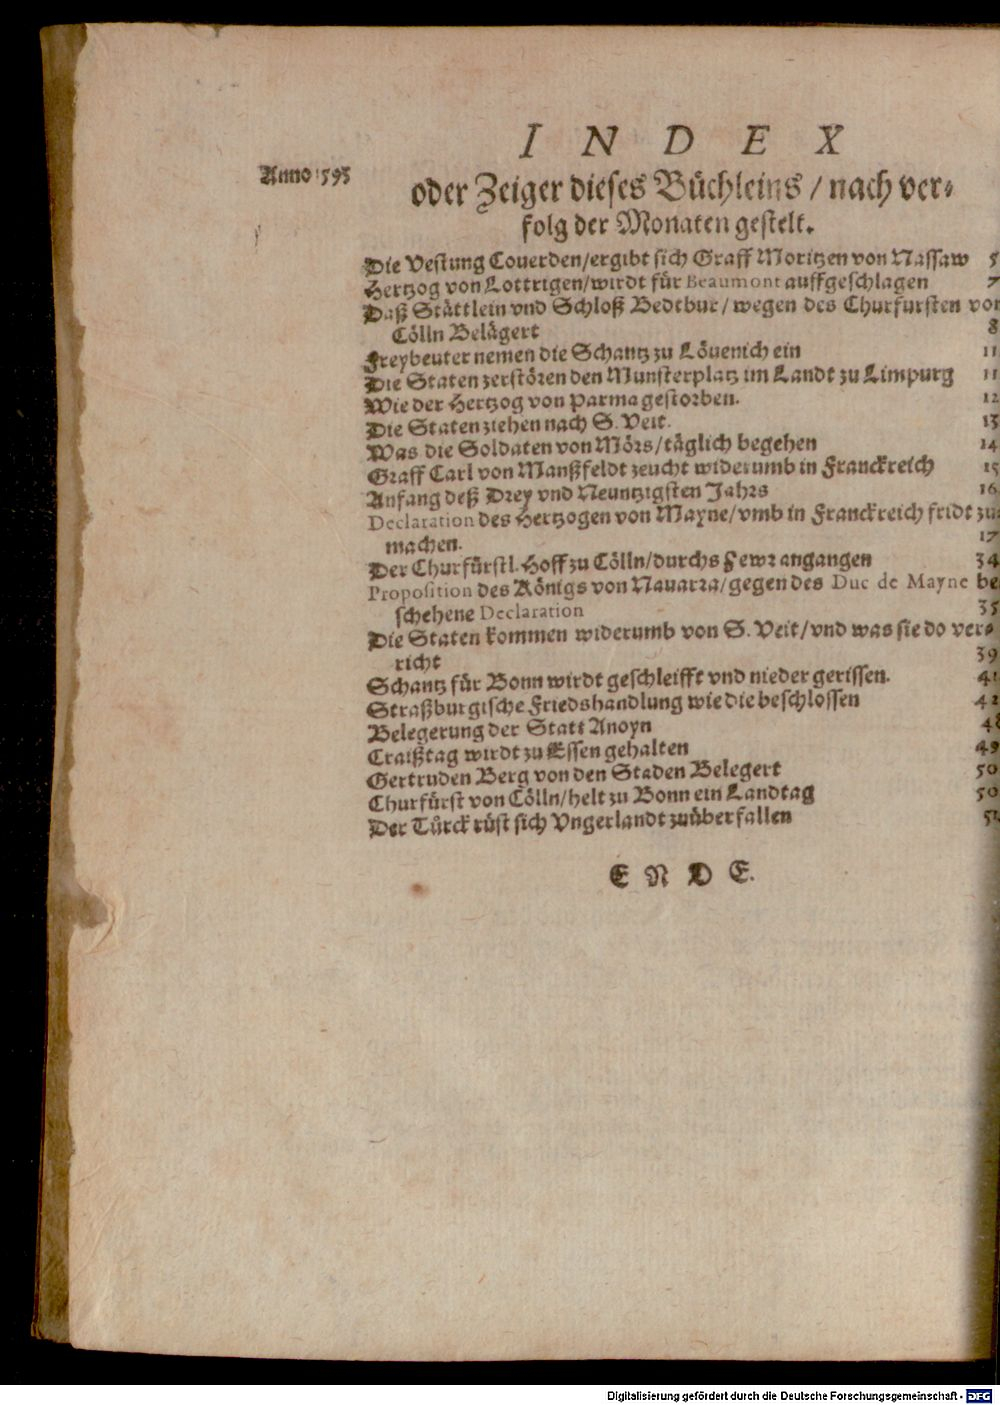 I N D E X
Anno 1593
oder Zeiger dieses Büchleins / nach ver⸗
folg der Monaten gestelt.
Die Vestung Couerden/ergibt sich Graff Moritzen von Nassaw 5
Hertzog von Lottrigen/wirdt für Beaumont auffgeschlagen 7
Daß Stättlein vnd Schloß Bedtbur/wegen des Churfursten von
Cölln Belägert 8
Freybeuter nemen die Schantz zu Löuenich ein 11
Die Staten zerstören den Munsterplatz im Landt zu Limpurg 11
Wie der Hertzog von Parma gestorben. 12
Die Staten ziehen nach S. Veit. 13
Was die Soldaten von Mörs/täglich begehen 14
Graff Carl von Manßfeldt zeucht widerumb in Franckreich 15
Anfang deß Drey vnd Neuntzigsten Jahrs 16
Declaration des Hertzogen von Mayne/vmb in Franckreich fridt zu
machen. 17
Der Churfürstl. Hoff zu Cölln/durchs Fewr angangen 34
Proposition des Königs von Nauarra/gegen des Duc de Mayne be
schehene Declaration 35
Die Staten kommen widerumb von S. Veit/vnd was sie do ver⸗
richt 39
Schantz für Bonn wirdt geschleifft vnd nieder gerissen. 41
Straßburgische Friedshandlung wie die beschlossen 42
Belegerung der Statt Anoyn 48
Craißtag wirdt zu Essen gehalten 49
Gertruden Berg von den Staden Belegert 50
Churfürst von Cölln/helt zu Bonn ein Landtag 50
Der Türck rüst sich Vngerlandt zuüberfallen 51
E N D E.
Digitalisierung gefördert durch die Deutsche Forschungsgemeinschaft - DFG